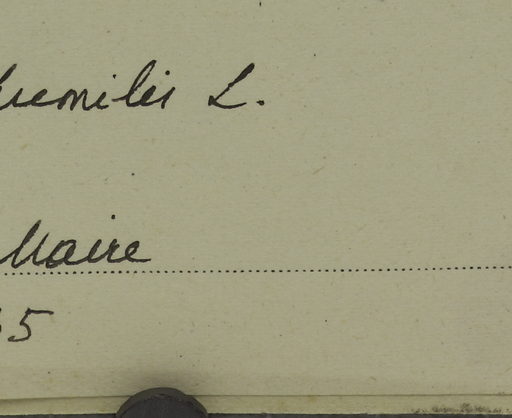 humilis L.
Maire
35